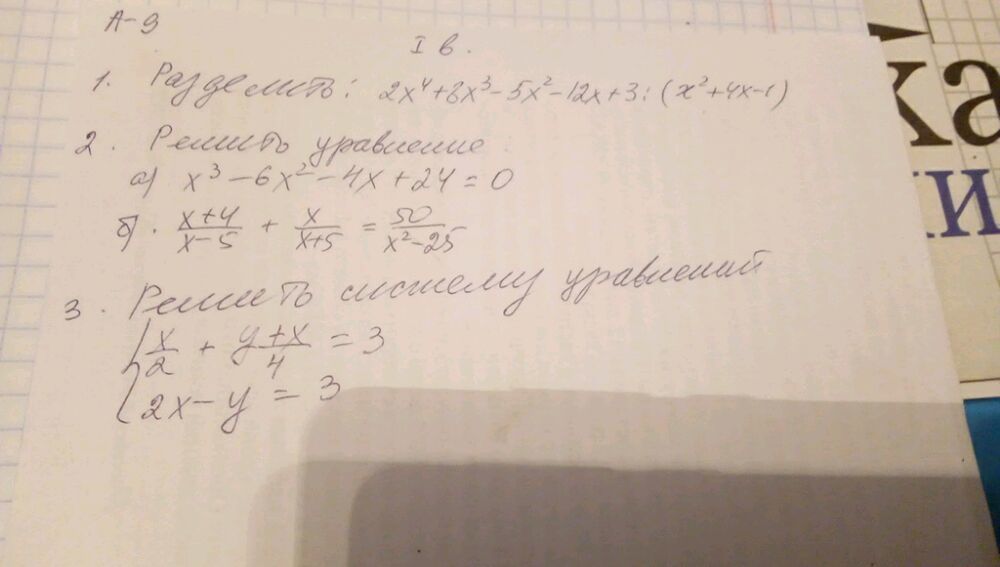 А-9
I в.
1. Разделить: 2x⁴+8x³-5x²-12x+3:(x²+4x-1)
2. Решить уравнение
а) x³-6x²-4x+24=0
б). (x+4)/(x-5) + x/(x+5) = 50/(x²-25)
3. Решить систему уравнений
{ x/2 + (y+x)/4 = 3
2x-y = 3
ка
ки